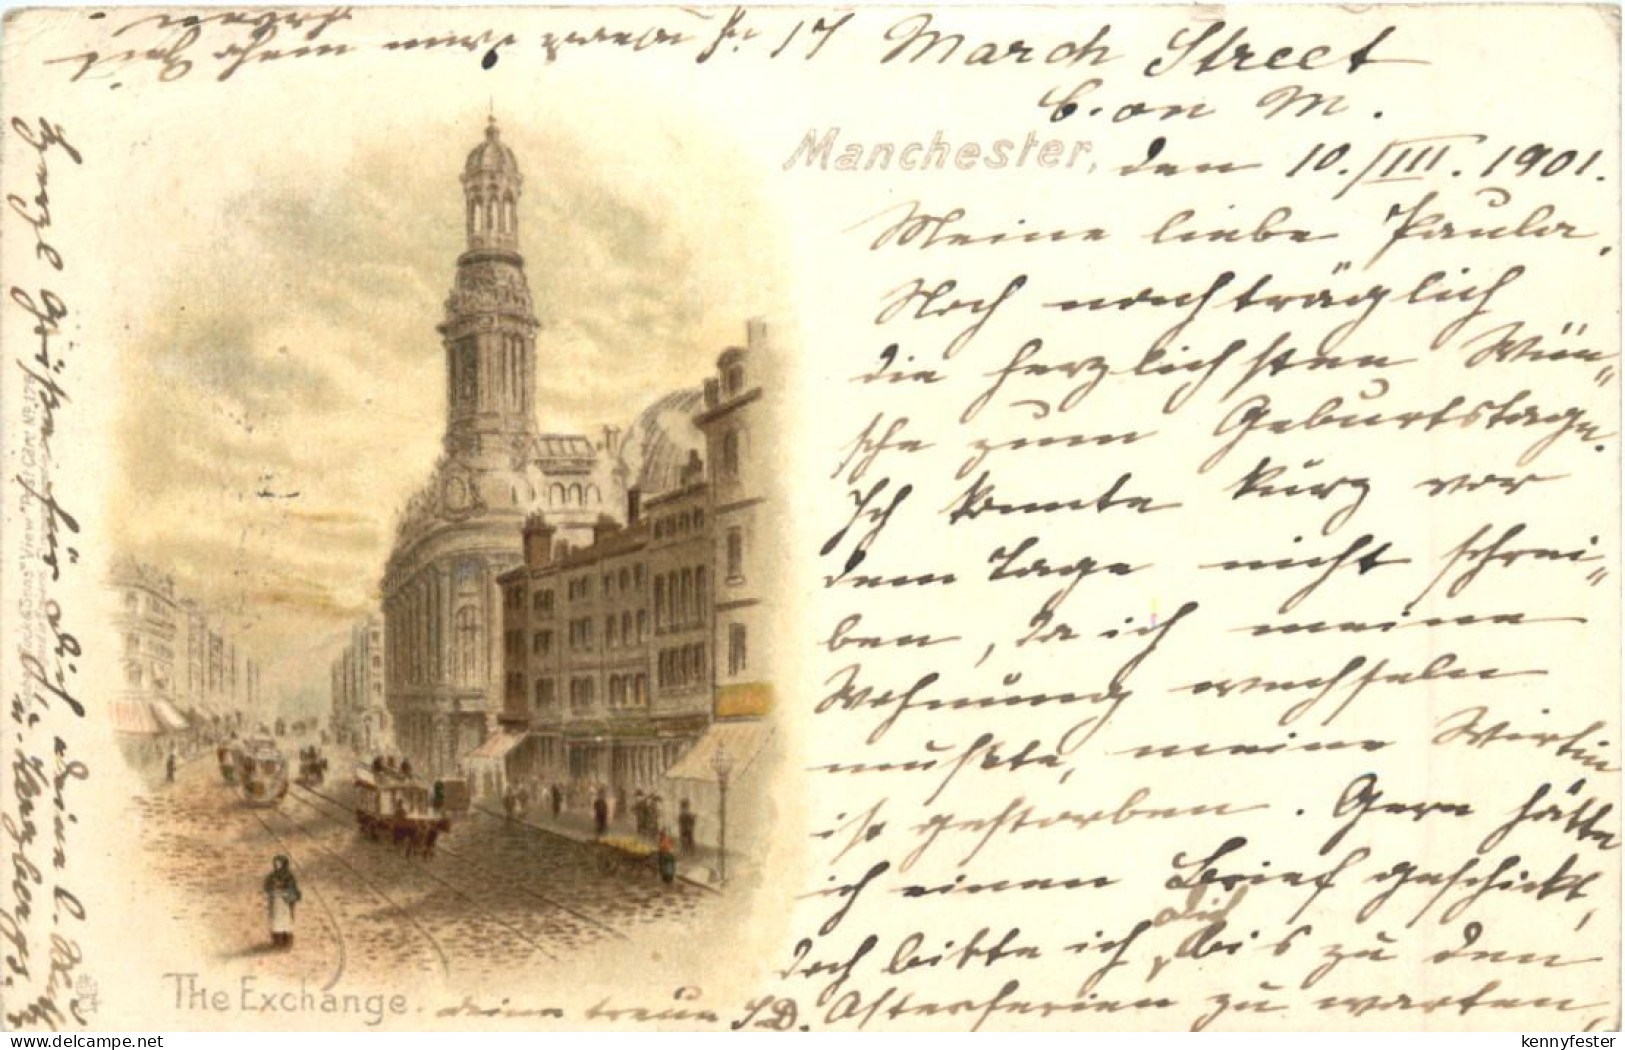 17 March Street
C. on M.
Manchester, den 10./III. 1901.
Meine liebe Paula.
Noch nachträglich
die herzlichsten Wün„
sche zum Geburtstage.
Ich konnte kurz vor
dem Tage nicht schrei„
ben, da ich meine
Wohnung wechseln
mußte, meine Wirtin
ist gestorben. Gern hätte
ich einen Brief geschickt,
doch bitte ich dich, bis zu den
Osterferien zu warten,
wenn
da habe ich mehr Zeit
Herzl Grüße für Dich, deine l.
u.
The Exchange.
deine treue
kennyfester